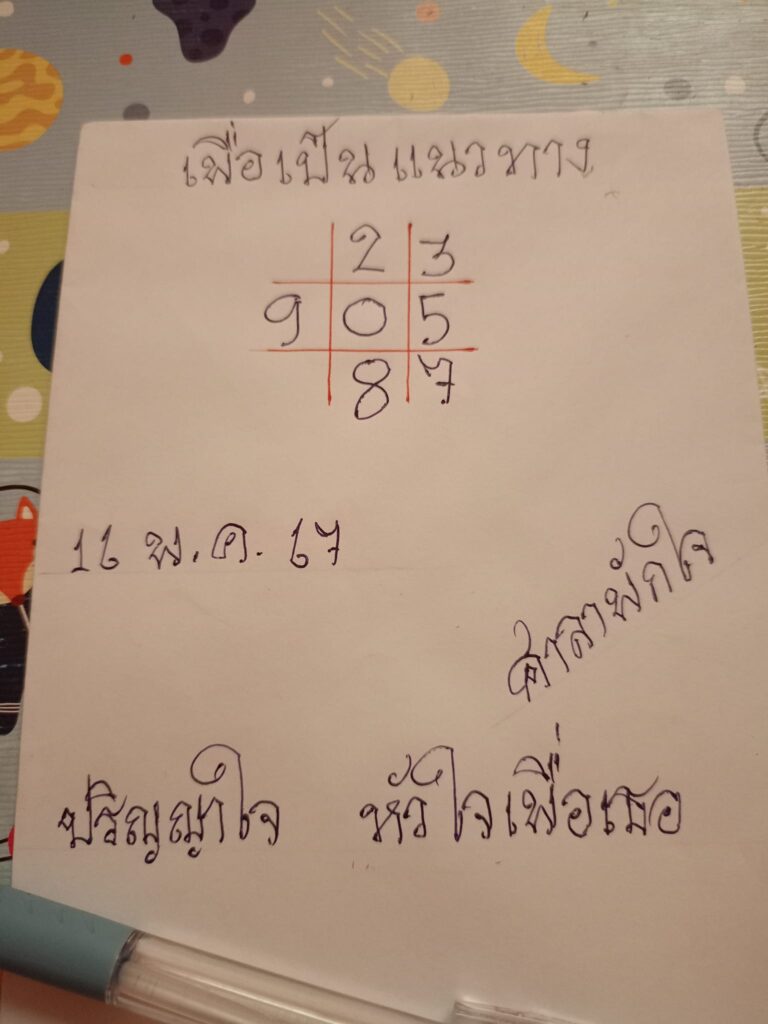 เพื่อเป็นแนวทาง
2 3
9 0 5
8 7
16 พ.ค. 67
ศาลาพักใจ
ปริญญาใจ หัวใจเพื่อเธอ